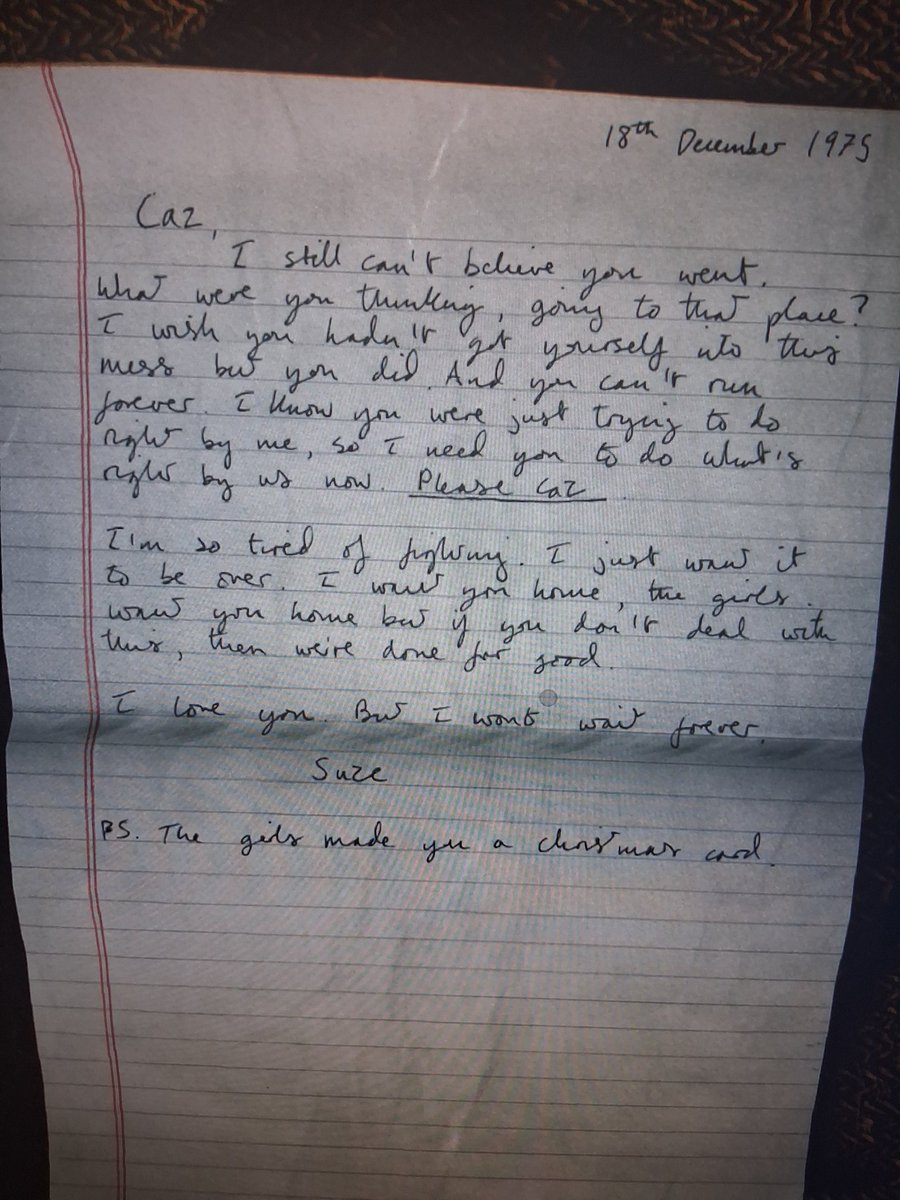 18th December 1975
Caz,
I still can't believe you went.
What were you thinking, going to that place?
I wish you hadn't got yourself into this
mess but you did. And you can't run
forever. I know you were just trying to do
right by me, so I need you to do what's
right by us now. Please Caz.
I'm so tired of fighting. I just want it
to be over. I want you home, the girls
want you home but if you don't deal with
this, then we're done for good.
I love you. But I wont wait forever.
Suze
PS. The girls made you a christmas card.